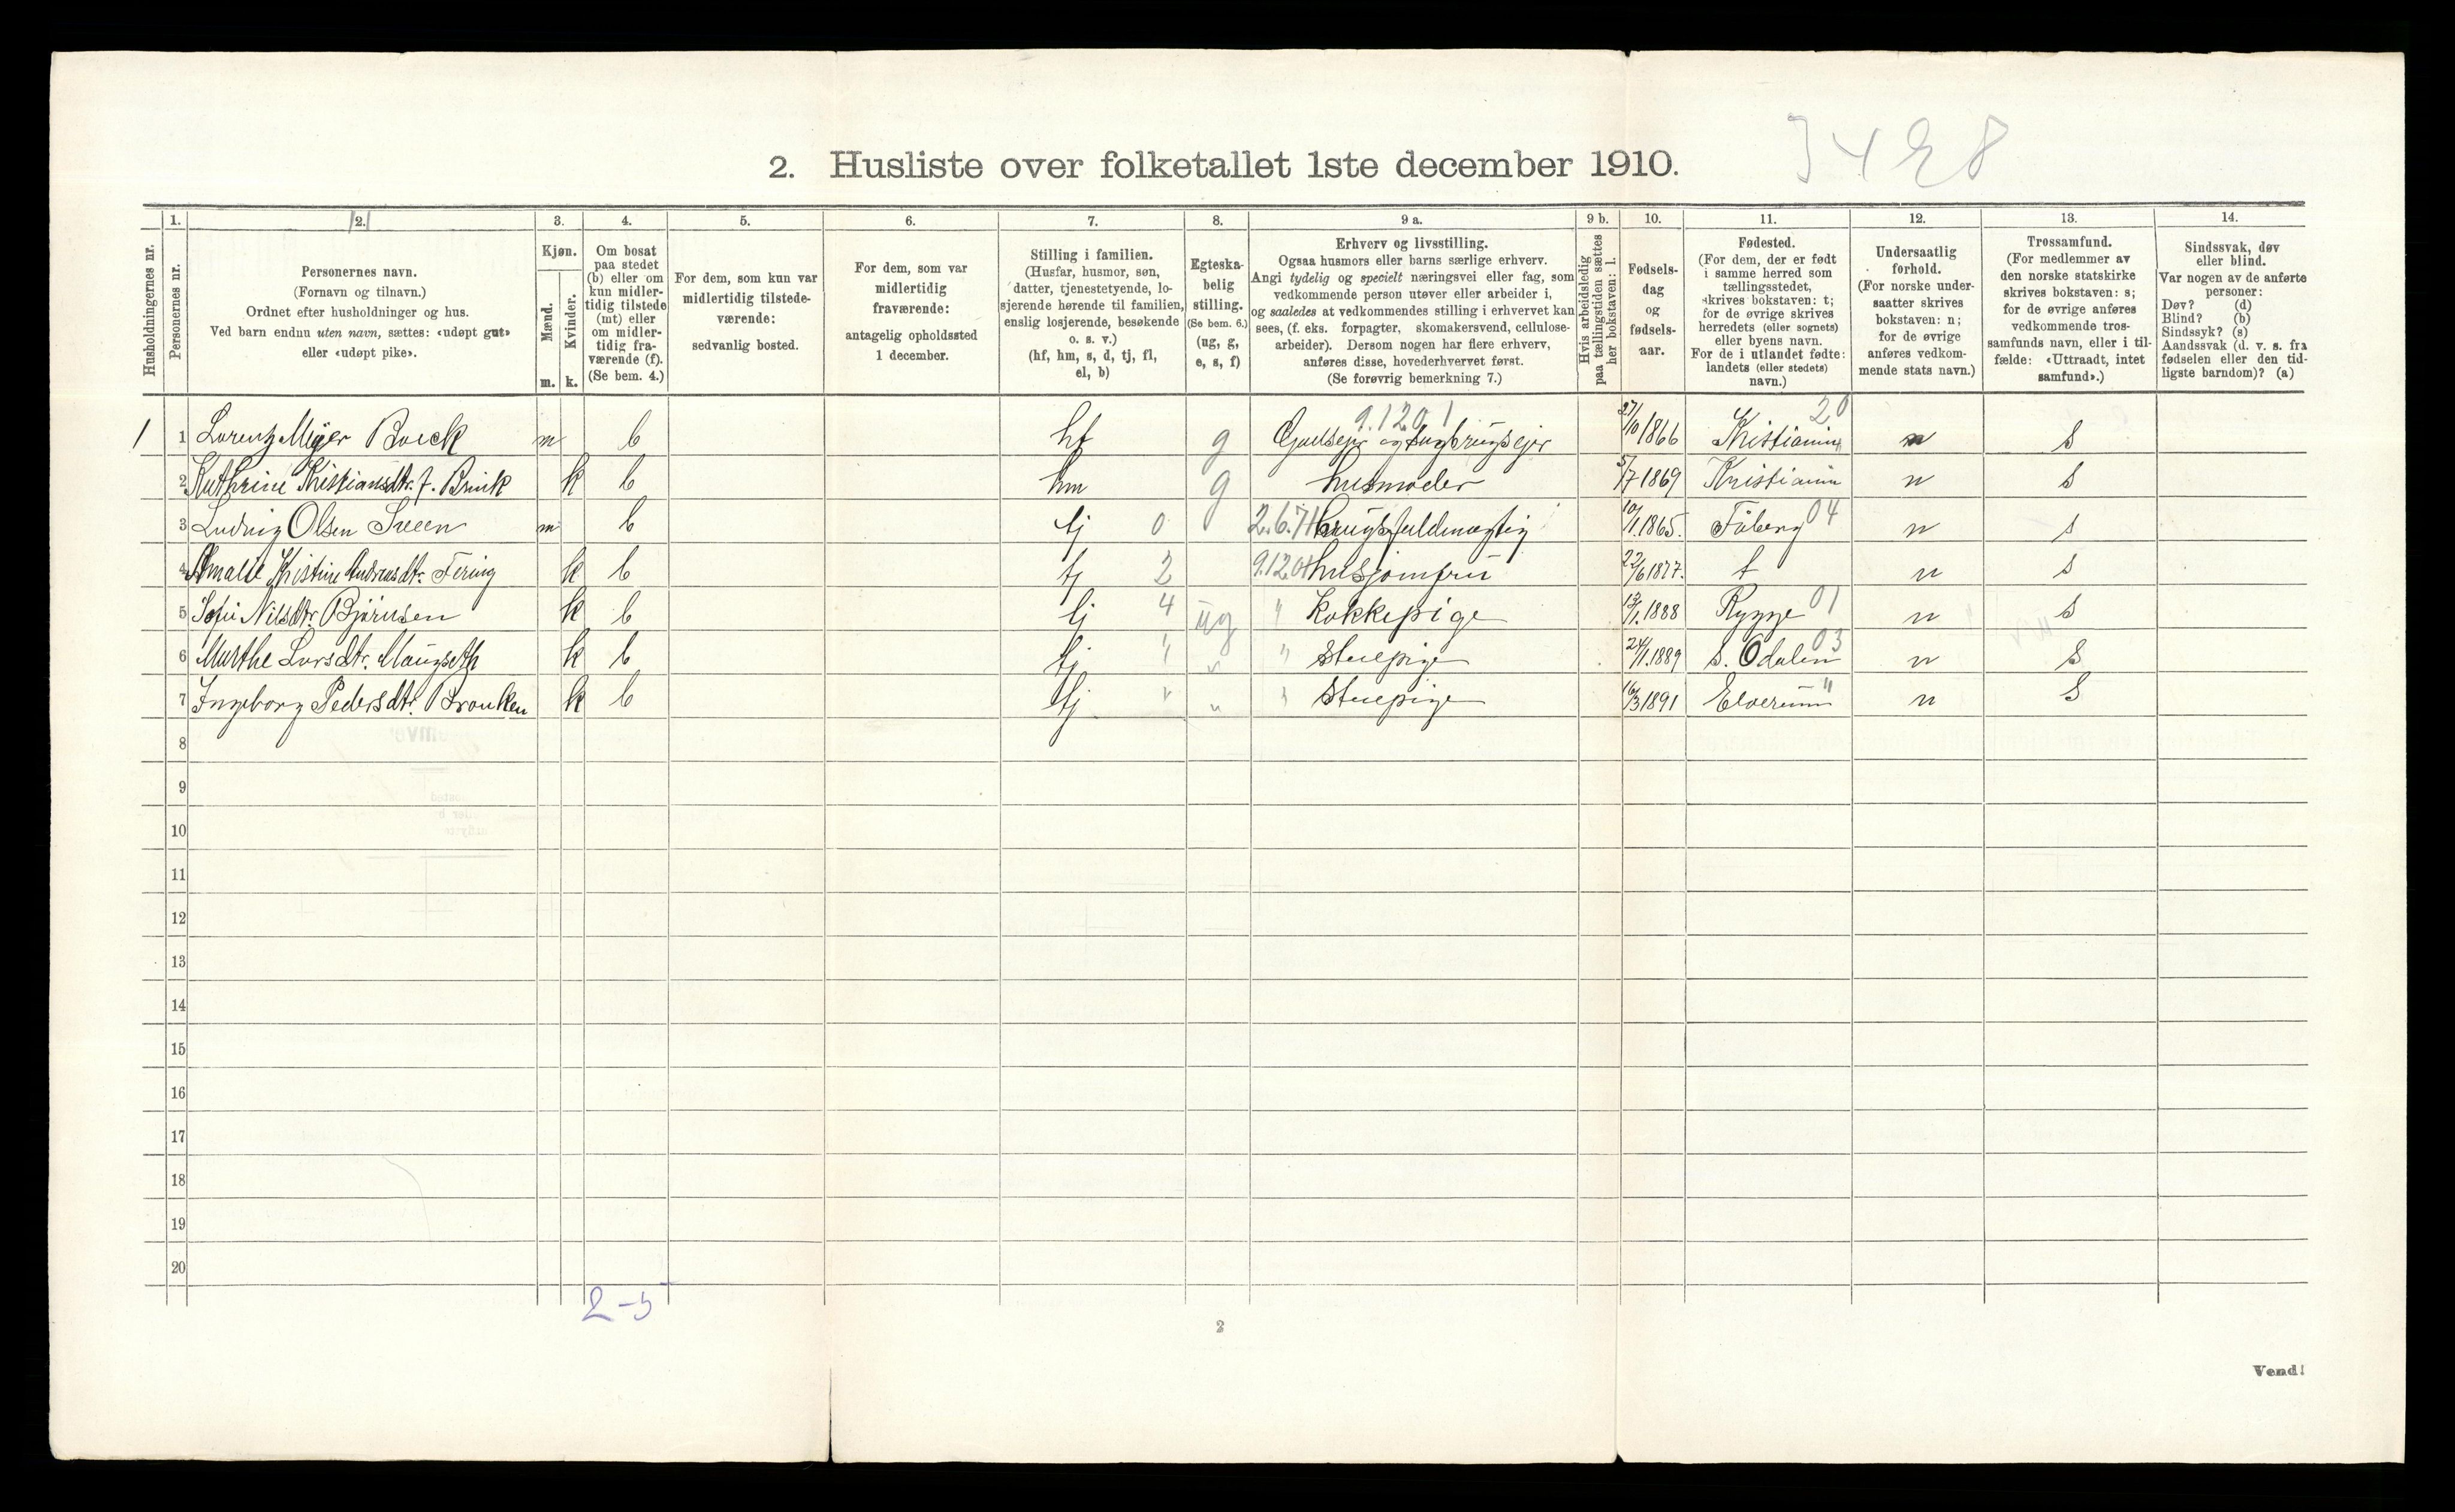 2. Husliste over folketallet 1ste december 1910.
1. 2. 3. 4. 5. 6. 7. 8. 9 a. 9 b. 10. 11. 12. 13. 14.
Husholdningernes nr.
Personernes nr.
Personernes navn.
(Fornavn og tilnavn.)
Ordnet efter husholdninger og hus.
Ved barn endnu uten navn, sættes: «udøpt gut»
eller «udøpt pike».
Kjøn.
Mænd.
Kvinder.
m. k.
Om bosat
paa stedet
(b) eller om
kun midler-
tidig tilstede
(mt) eller
om midler-
tidig fra-
værende (f).
(Se bem. 4.)
For dem, som kun var
midlertidig tilstede-
værende:
sedvanlig bosted.
For dem, som var
midlertidig
fraværende:
antagelig opholdssted
1 december.
Stilling i familien.
(Husfar, husmor, søn,
datter, tjenestetyende, lo-
sjerende hørende til familien,
enslig losjerende, besøkende
o. s. v.)
(hf, hm, s, d, tj, fl,
el, b)
Egteska-
belig
stilling.
(Se bem. 6.)
(ug, g,
e, s, f)
Erhverv og livsstilling.
Ogsaa husmors eller barns særlige erhverv.
Angi tydelig og specielt næringsvei eller fag, som
vedkommende person utøver eller arbeider i,
og saaledes at vedkommendes stilling i erhvervet kan
sees, (f. eks. forpagter, skomakersvend, cellulose-
arbeider). Dersom nogen har flere erhverv,
anføres disse, hovederhvervet først.
(Se forøvrig bemerkning 7.)
Hvis arbeidsledig
paa tællingstiden sættes
her bokstaven: l.
Fødsels-
dag
og
fødsels-
aar.
Fødested.
(For dem, der er født
i samme herred som
tællingsstedet,
skrives bokstaven: t;
for de øvrige skrives
herredets (eller sognets)
eller byens navn.
For de i utlandet fødte:
landets (eller stedets)
navn.)
Undersaatlig
forhold.
(For norske under-
saatter skrives
bokstaven: n;
for de øvrige
anføres vedkom-
mende stats navn.)
Trossamfund.
(For medlemmer av
den norske statskirke
skrives bokstaven: s;
for de øvrige anføres
vedkommende tros-
samfunds navn, eller i til-
fælde: «Uttraadt, intet
samfund».)
Sindssvak, døv
eller blind.
Var nogen av de anførte
personer:
Døv? (d)
Blind? (b)
Sindssyk? (s)
Aandssvak (d. v. s. fra
fødselen eller den tid-
ligste barndom)? (a)
9.120 1 20
1 1 Lorentz Meyer Boeck m b hf g Godsejer og sagbrugsejer 27/10 1866 Kristiania n s
2 Kathrine Kristiansdtr. f. Brink k b hm g husmoder 5/7 1869 Kristiania n s
3 Ludvig Olsen Sveen m b tj 0 brugsfuldmægtig 10/1 1865. Fåberg 04 n s
4 Amalie Kristine Andreasdtr. Fering k b tj 2 9.120 husjomfru 22/6 1877. t n s
5 Sofie Nilsdtr. Bjørnsen k b tj 4 ug " Kokkepige 13/1 1888 Rygge 01 n s
6 Marthe Larsdtr. Maugseth k b tj " " " Stuepige 24/1 1889 S. Odalen 03 n s
7 Ingeborg Pedersdtr. Bronken k b tj " " " Stuepige 16/3 1891 Elverum " n s
8
9
10
11
12
13
14
15
16
17
18
19
20
2-5
2
Vend!